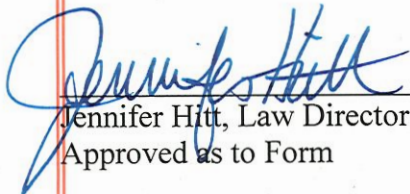 Jennifer Hitt
Jennifer Hitt, Law Director
Approved as to Form